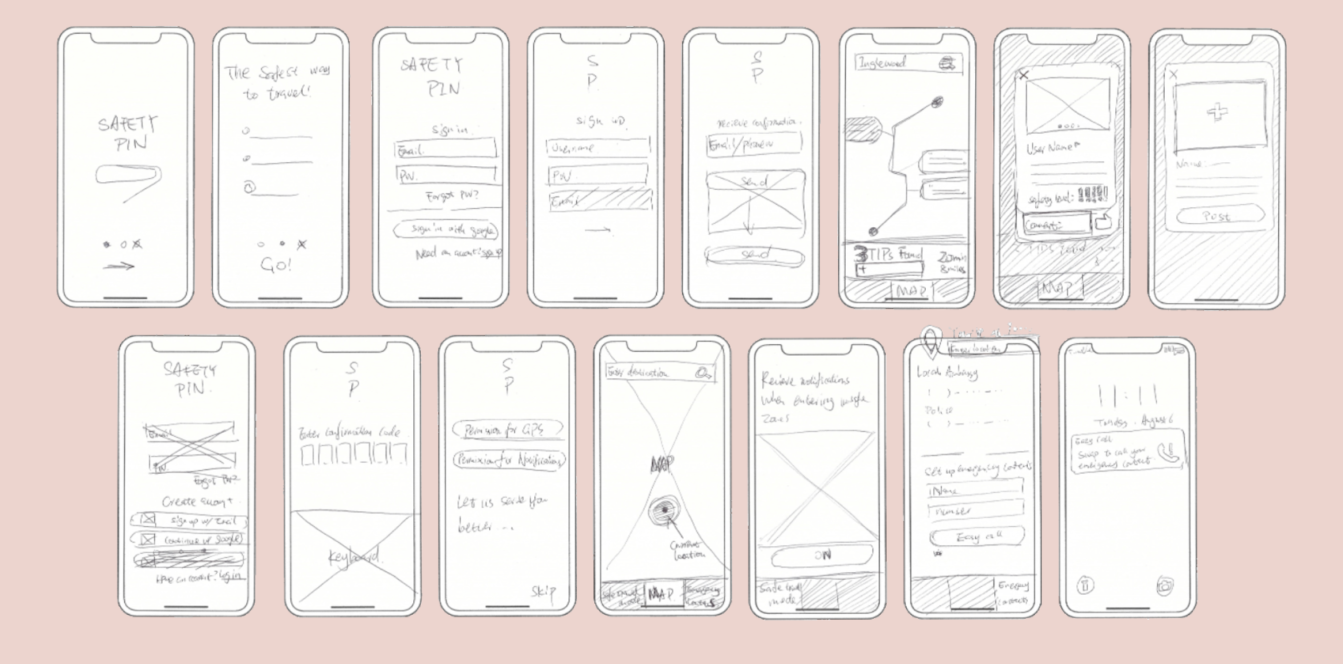 SAFETY
PIN
The Safest way
to travel!
GO!
SAFETY
PIN
sign in
Email
PW.
Forgot PW?
sign in with google
S
P
sign up
Username
PW
Email
S
P
recieve confirmation.
Email/phone#
send
send
Inglewood
3 TIPS Found
+
20min
8 miles
MAP
X
User Name
safety level:
MAP
X
Name:
Post
SAFETY
PIN.
Email
PW
Forgot PW?
Create account
sign up w/ Email
Continue w/ Google
Have an account? Login
S
P
Enter confirmation code
Keyboard
S
P
Permission for GPS
Permission for Notifications
Let us serve you
better ...
Skip
Enter destination
MAP
Current
location
MAP
Recieve notifications
when entering
zones
ON
mode
Local
Police
Set up emergency contacts
Name
number
Easy call
Emergency
contacts
11:11
Tuesday, August 6
Easy Call
Swipe to call your
emergency contact